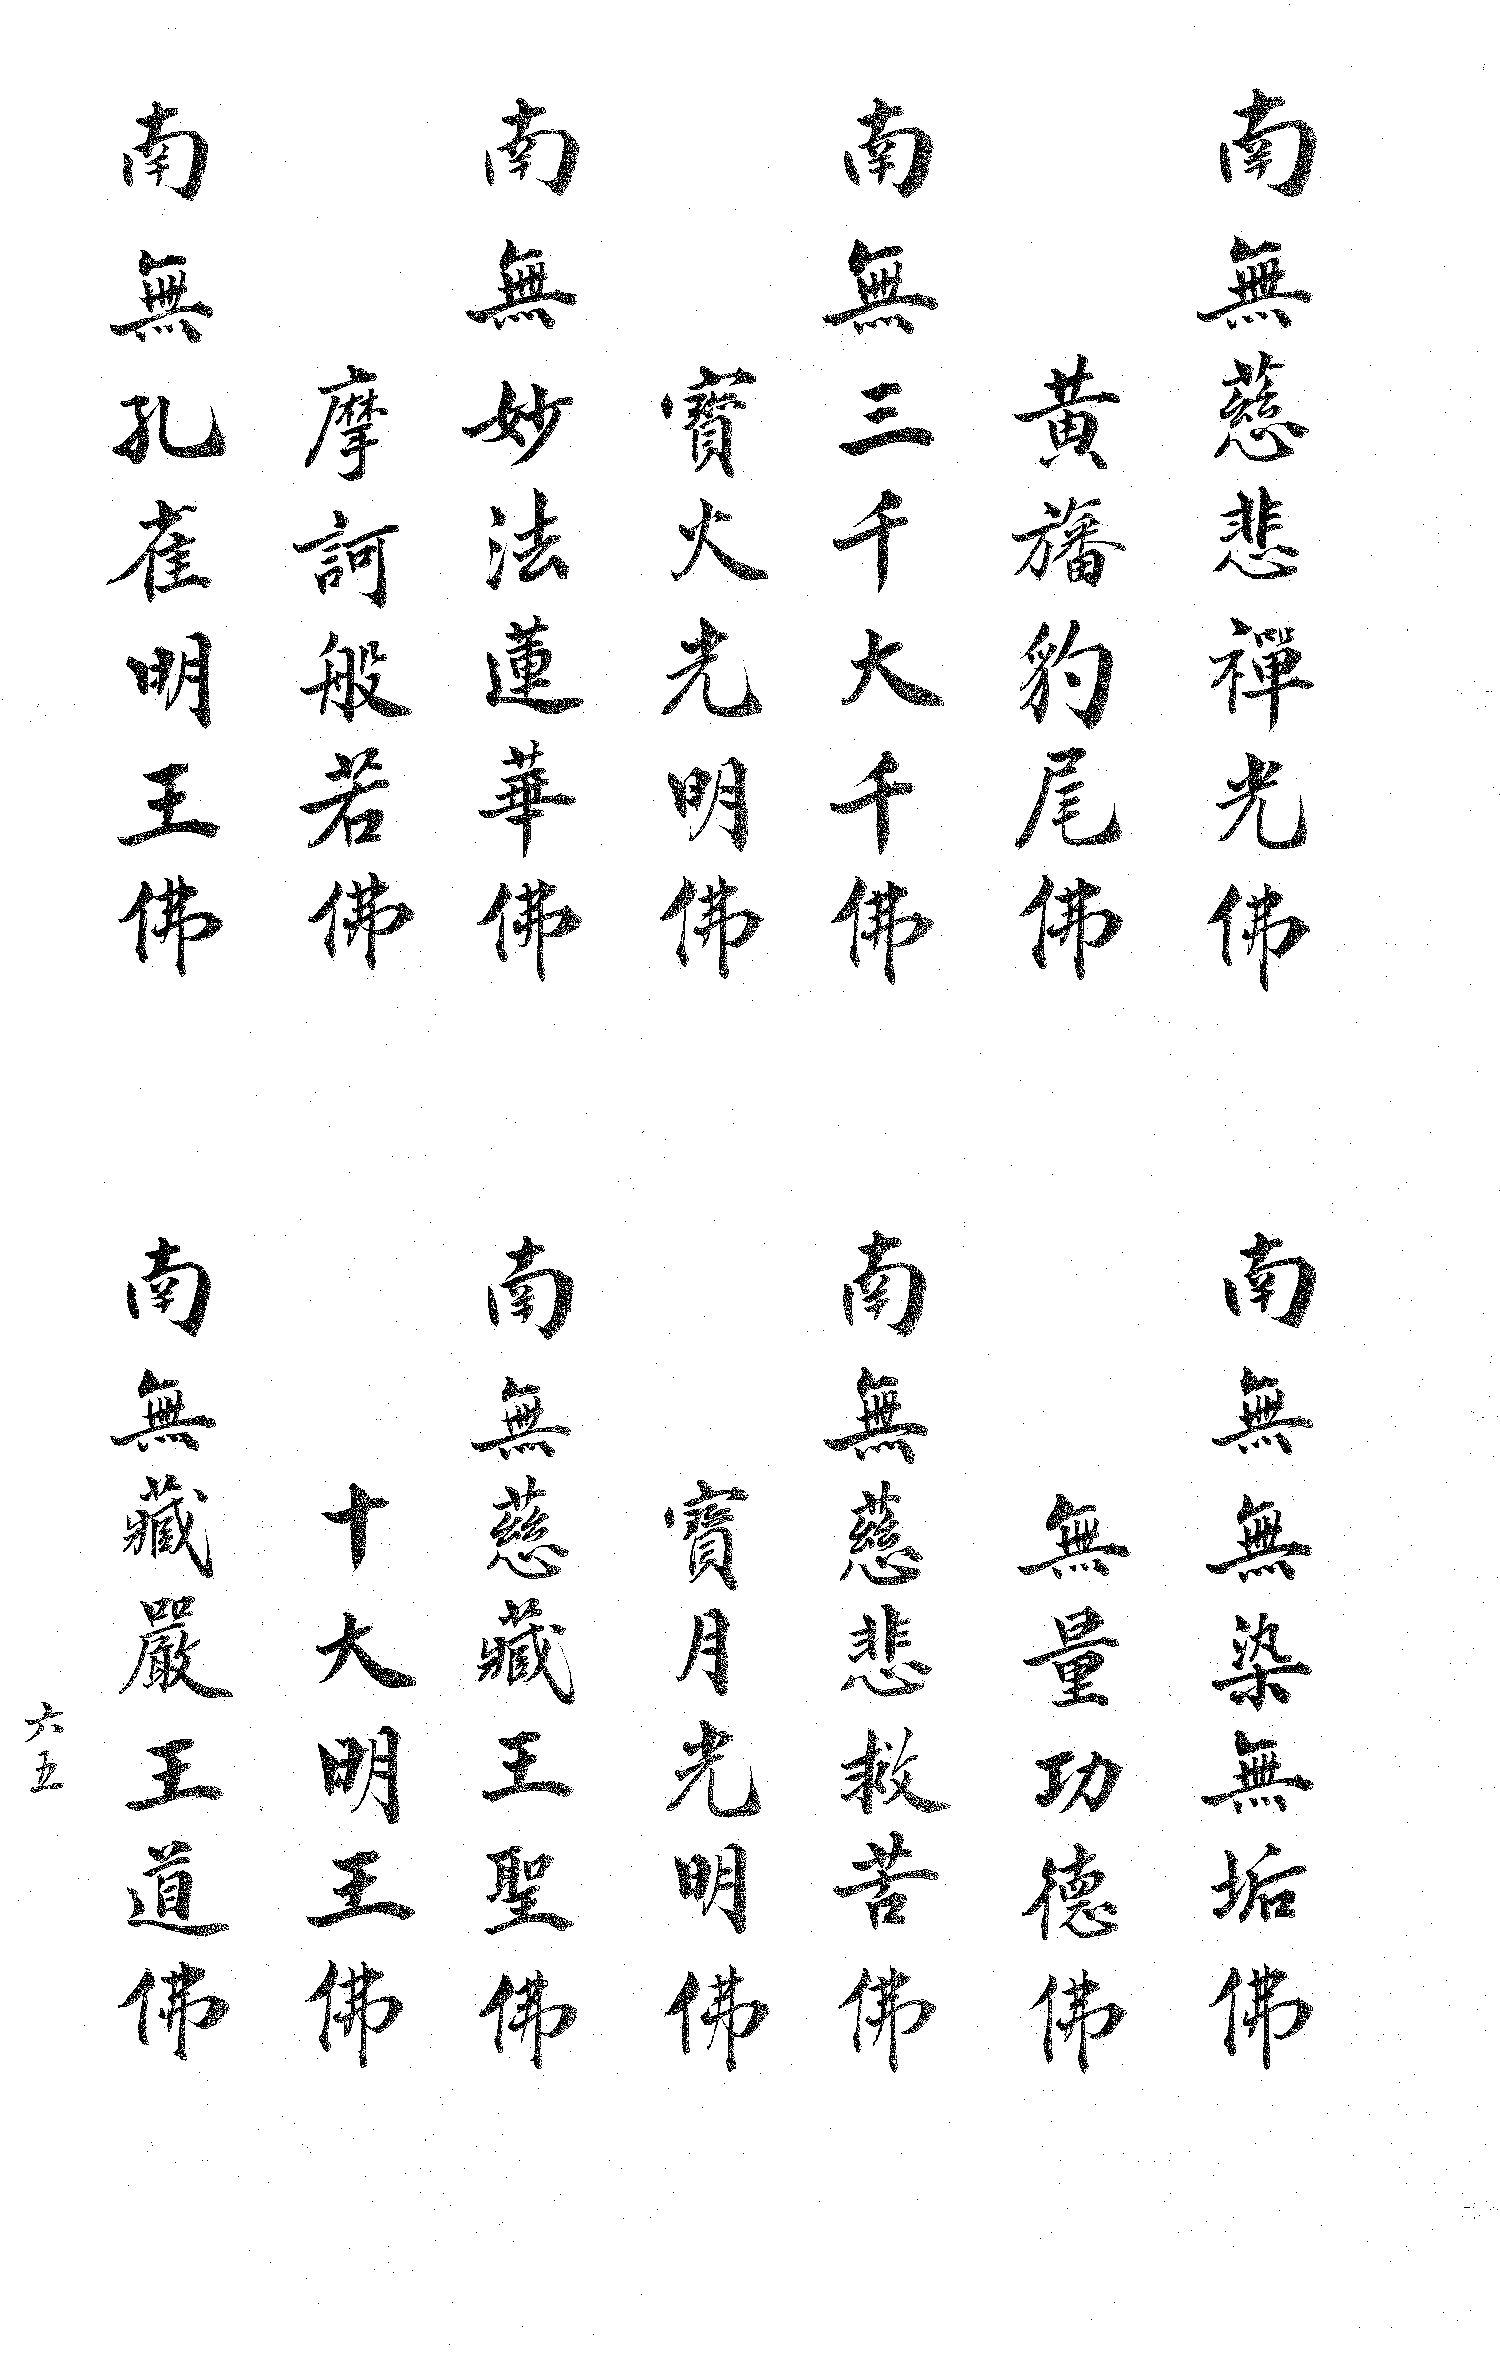 南無慈悲禪光佛
黃旛豹尾佛
南無三千大千佛
寶火光明佛
南無妙法蓮華佛
摩訶般若佛
南無孔雀明王佛
南無無染無垢佛
無量功德佛
南無慈悲救苦佛
寶月光明佛
南無慈藏王聖佛
十大明王佛
南無藏嚴王道佛
六五